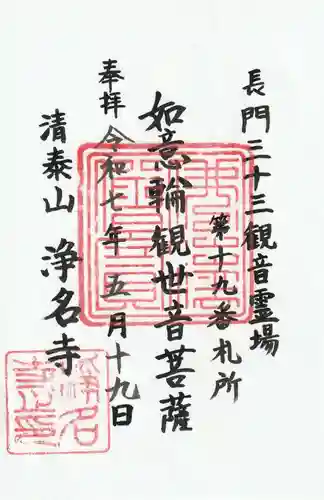 長門三十三観音霊場
第十九番札所
如意輪観世音菩薩
奉拝 令和七年五月十九日
清泰山 浄名寺